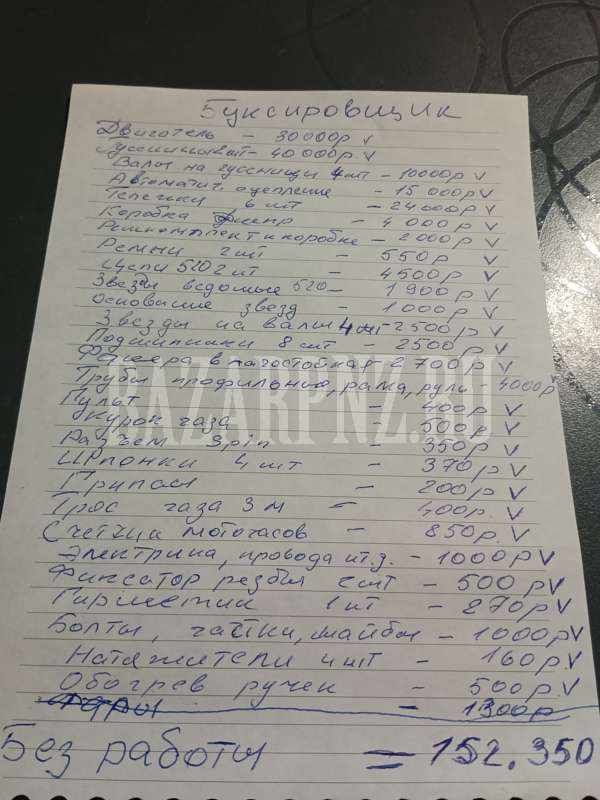 Буксировщик
Двигатель - 30000р V
Гусеницы 4шт - 40000р V
Валы на гуссницы 4шт - 10000р V
Автоматич. сцепление - 15000р V
Тележки 6 шт - 24000р V
Коробка Днепр - 4000р V
Ремкомплект к коробке - 2000р V
Ремни 2 шт - 550р V
Цепи 520 2 шт - 4500р V
Звезды ведомые 520 - 1900р V
Основание звезд - 1000р V
Звезды на валы 4шт - 2500р V
Подшипники 8 шт - 2500р V
Фанера влагостойкая 2 700р V
Трубы профильные, рама, руль - 4000р
Пульт - 400р V
Курок газа - 500р V
Разъем 9pin - 350р V
Шпонки 4 шт - 370р V
Припои - 200р V
Трос газа 3 м - 400р. V
Счетчик моточасов - 850р. V
Электрика, провода и т.д. - 1000р V
Фиксатор резбы 2шт - 500р V
Гирметик 1 шт - 270р V
Болты, гайки, шайбы - 1000р V
Натяжители 4шт - 160р. V
Обогрев ручек - 500р. V
Фары - 1300р
Без работы = 152.350
BAZARPNZ.RU